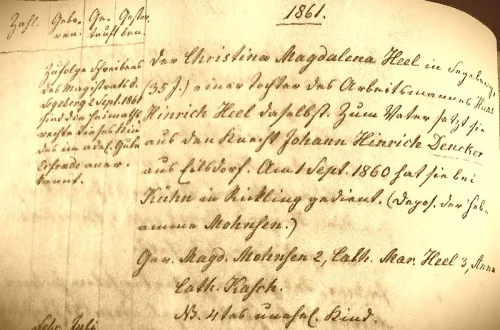 1861.
Zahl. Gebo- Ge- Gestor-
ren. tauft ben.
Zufolge Schreibens
des Magistrats
Segeberg 2 Sept. 1861
sind die Heimaths-
rechte dieses Kin-
des im adel. Gute
aner-
kannt.
der Christina Magdalena Heel in Segeberg,
(35 J.) einer Tochter des Arbeitsmannes Hans
Hinrich Heel daselbst. Zum Vater setzt sie
aus den Knecht Johann Hinrich Dencker
aus Eilsdorf. Sept. 1860 hat sie bei
Kühn in Rickling gedient. (Depos. der Heb-
amme Mohnsen.)
Gev. Magd. Mohnsen 2, Cath. Mar. Heel 3, Anna
Cath. Kasch.
NB. 4tes unehel. Kind.
Juli